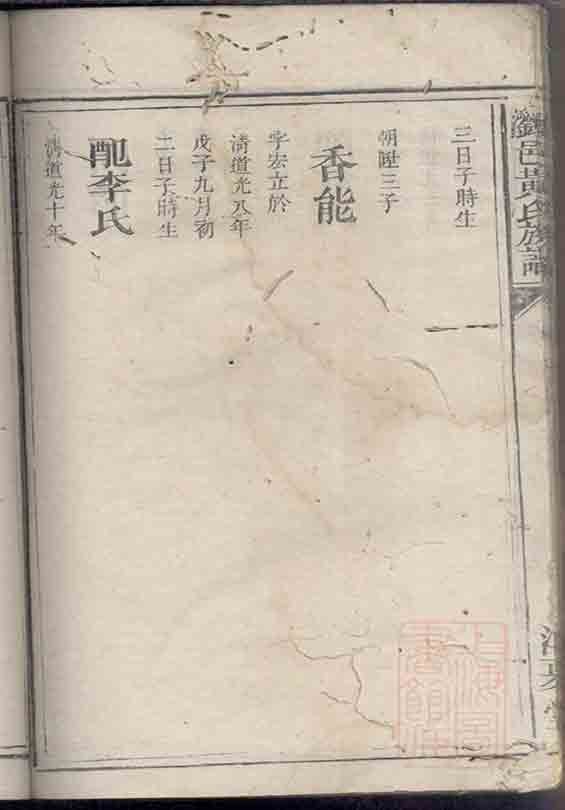 三日子時生
朝陞三子
香能
字宏立於
清道光八年
戊子九月初
二日子時生
配李氏
清道光十年
邑黄氏族譜